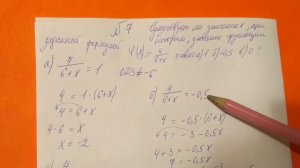 №7 Существует ли значение x, при
котором, значение функции,
заданной формулой φ(x) = 4/(6+x) равно а) 1 б) -0,5 в) 0?
а) 4/(6+x) = 1 ОДЗ ≠ -6
4 = 1·(6+x)
4 = 6+x
4-6 = x
x = -2
б) 4/(6+x) = -0,5
4 = -0,5·(6+x)
4 = -3-0,5x
4+3 = -0,5x
7 = -0,5x